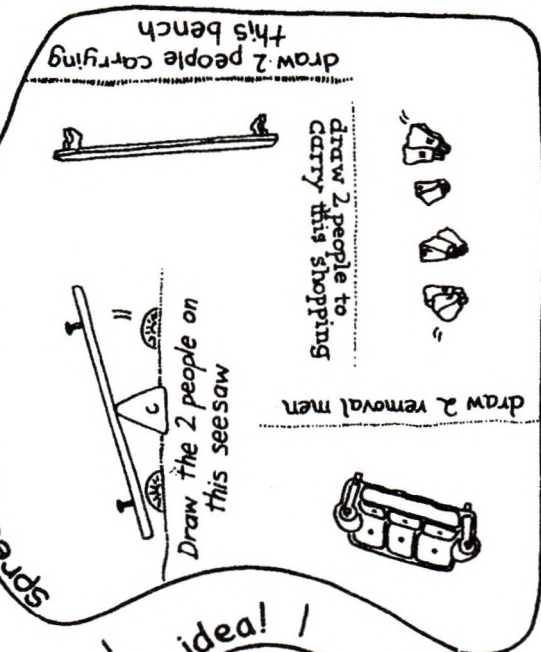 draw 2 people carrying
this bench
draw 2 people to
carry this shopping
Draw the 2 people on
this seesaw
draw 2 removal men
idea!